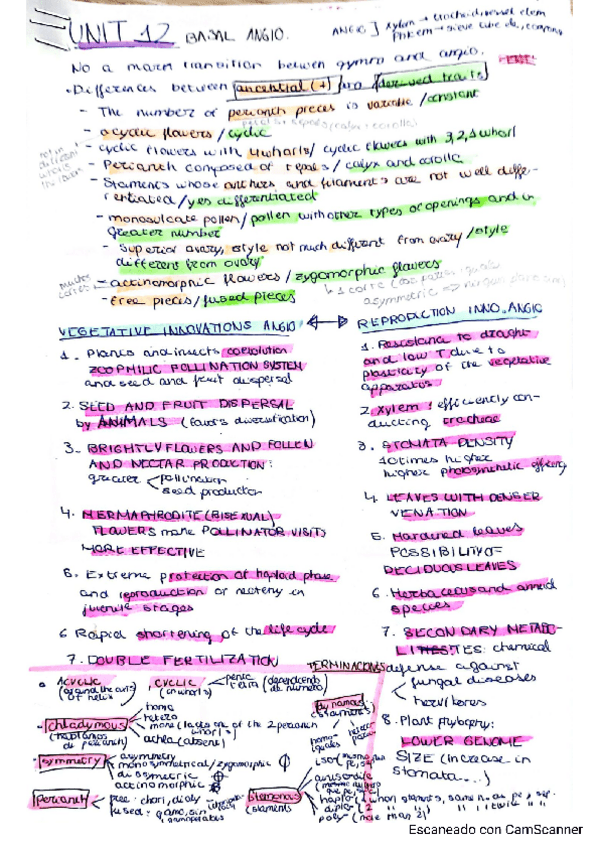 UNIT 12 BASAL ANGIO.
ANGIO ] Xylem → tracheid vessel elem
Phloem → sieve tube ele, companio
No a main transition between gymno and angio.
• Differences between ancestral (+) pro / derived traits
- The number of perianth pieces is variable / constant
- acyclic flowers / cyclic
- cyclic flowers with 4 whorls / cyclic flowers with 3,2,1 whorl
- Perianth composed of tepals / calyx and corolla
- Staments whose anthers and filaments are not well diffe-
rentiated / yes differentiated
- monosulcate pollen / pollen with other types of openings and in
greater number
- Superior ovary, style not much different from ovary / style
different from ovary
- actinomorphic flowers / zygomorphic flowers
- free pieces / fused pieces
VEGETATIVE INNOVATIONS ANGIO
1. Plants and insects coevolution
ZOOPHILIC POLLINATION SYSTEM
and seed and fruit dispersal
2. SEED AND FRUIT DISPERSAL
by ANIMALS (favors diversification)
3. BRIGHTLY FLOWERS AND POLLEN
AND NECTAR PRODUCTION:
greater pollination
seed production
4. HERMAPHRODITE (BISEXUAL)
FLOWERS make POLLINATOR VISITS
MORE EFFECTIVE
5. Extreme protection of haploid phase
and reproduction or neoteny in
juvenile stages
6 Rapid shortening of the life cycle
7. DOUBLE FERTILIZATION
REPRODUCTION INNO. ANGIO
1. Resistance to drought
and low T due to
plasticity of the vegetative
apparatus
2. Xylem: efficiently con-
ducting tracheae
3. STOMATA DENSITY
10 times higher
highest photosynthetic efficiency
4. LEAVES WITH DENSER
VENATION
5. Hardened leaves
POSSIBILITY OF
DECIDUOUS LEAVES
6. Herbaceous and annual
species
7. SECONDARY METABO-
LITES: chemical
defense against
fungal diseases
herbivores
8. Plant phylogeny:
LOWER GENOME
SIZE (increase in
stomata...)
TERMINACIONES
ACYCLIC
CYCLIC
(in whorls)
penta
tetra (depende del
numero)
- chladymous
(hablamos
de perianth)
homo
hetero
mono (lacks one of the 2 perianth
whorls)
achla (absent)
dynamous
(stamens)
- symmetry
asymmetry
monosymmetrical / zygomorphic
disymetric
actinomorphic
Perianth
free: chori, dialy
fused: gamo, sin
Stemonous
(staments
poly (more than 2)
Escaneado con CamScanner